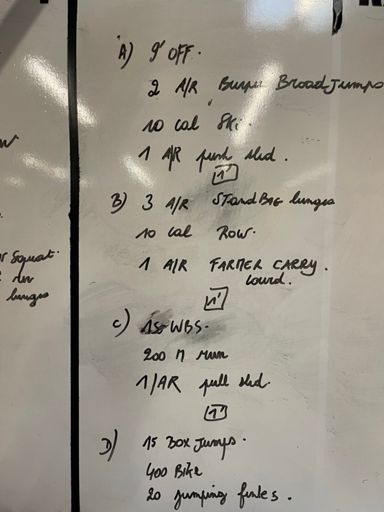 A) 9' OFF.
2 A/R Burpee Broad Jumps
10 cal Ski
1 A/R push sled.
1'
B) 3 A/R STandBAG lunges
10 cal Row.
1 A/R FARMER CARRY.
Lourd.
1'
C) 15 WBS.
200 M Run
1/AR pull sled.
1'
D) 15 Box Jumps.
400 Bike
20 jumping fentes.
r Squat.
lunges